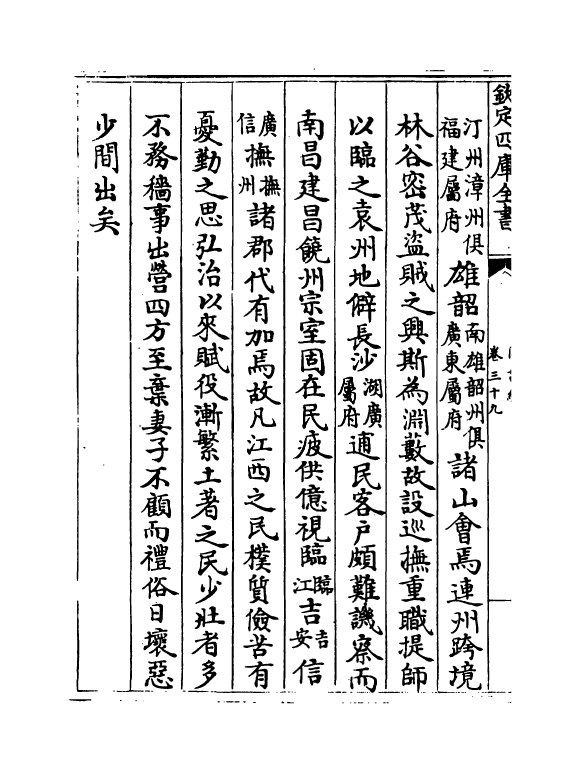 欽定四庫全書
卷三十九
汀州漳州俱福建屬府雄韶南雄韶州俱廣東屬府諸山會焉連州跨境
林谷密茂盜賊之興斯為淵藪故設巡撫重職提師
以臨之袁州地僻長沙湖廣屬府逋民客戶頗難譏察而
南昌建昌饒州宗室固在民疲供億視臨臨江吉吉安信
廣信撫撫州諸郡代有加焉故凡江西之民樸質儉苦有
憂勤之思弘治以來賦役漸繁土著之民少壯者多
不務穡事出營四方至棄妻子不顧而禮俗日壞惡
少間出矣